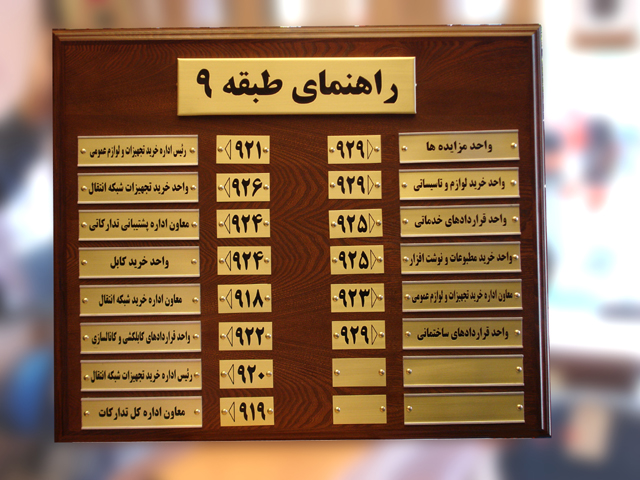 راهنمای طبقه ۹
واحد مزایده ها ۹۲۹
واحد خرید لوازم و تاسیساتی ۹۲۹
واحد قراردادهای خدماتی ۹۲۵
واحد خرید مطبوعات و نوشت افزار ۹۲۵
معاون اداره خرید تجهیزات و لوازم عمومی ۹۲۳
واحد قراردادهای ساختمانی ۹۲۹
۹۲۱ رئیس اداره خرید تجهیزات و لوازم عمومی
۹۲۶ واحد خرید تجهیزات شبکه انتقال
۹۲۴ معاون اداره پشتیبانی تدارکاتی
۹۲۴ واحد خرید کابل
۹۱۸ معاون اداره خرید شبکه انتقال
۹۲۲ واحد قراردادهای کابلکشی و کانالسازی
۹۲۰ رئیس اداره خرید تجهیزات شبکه انتقال
۹۱۹ معاون اداره کل تدارکات